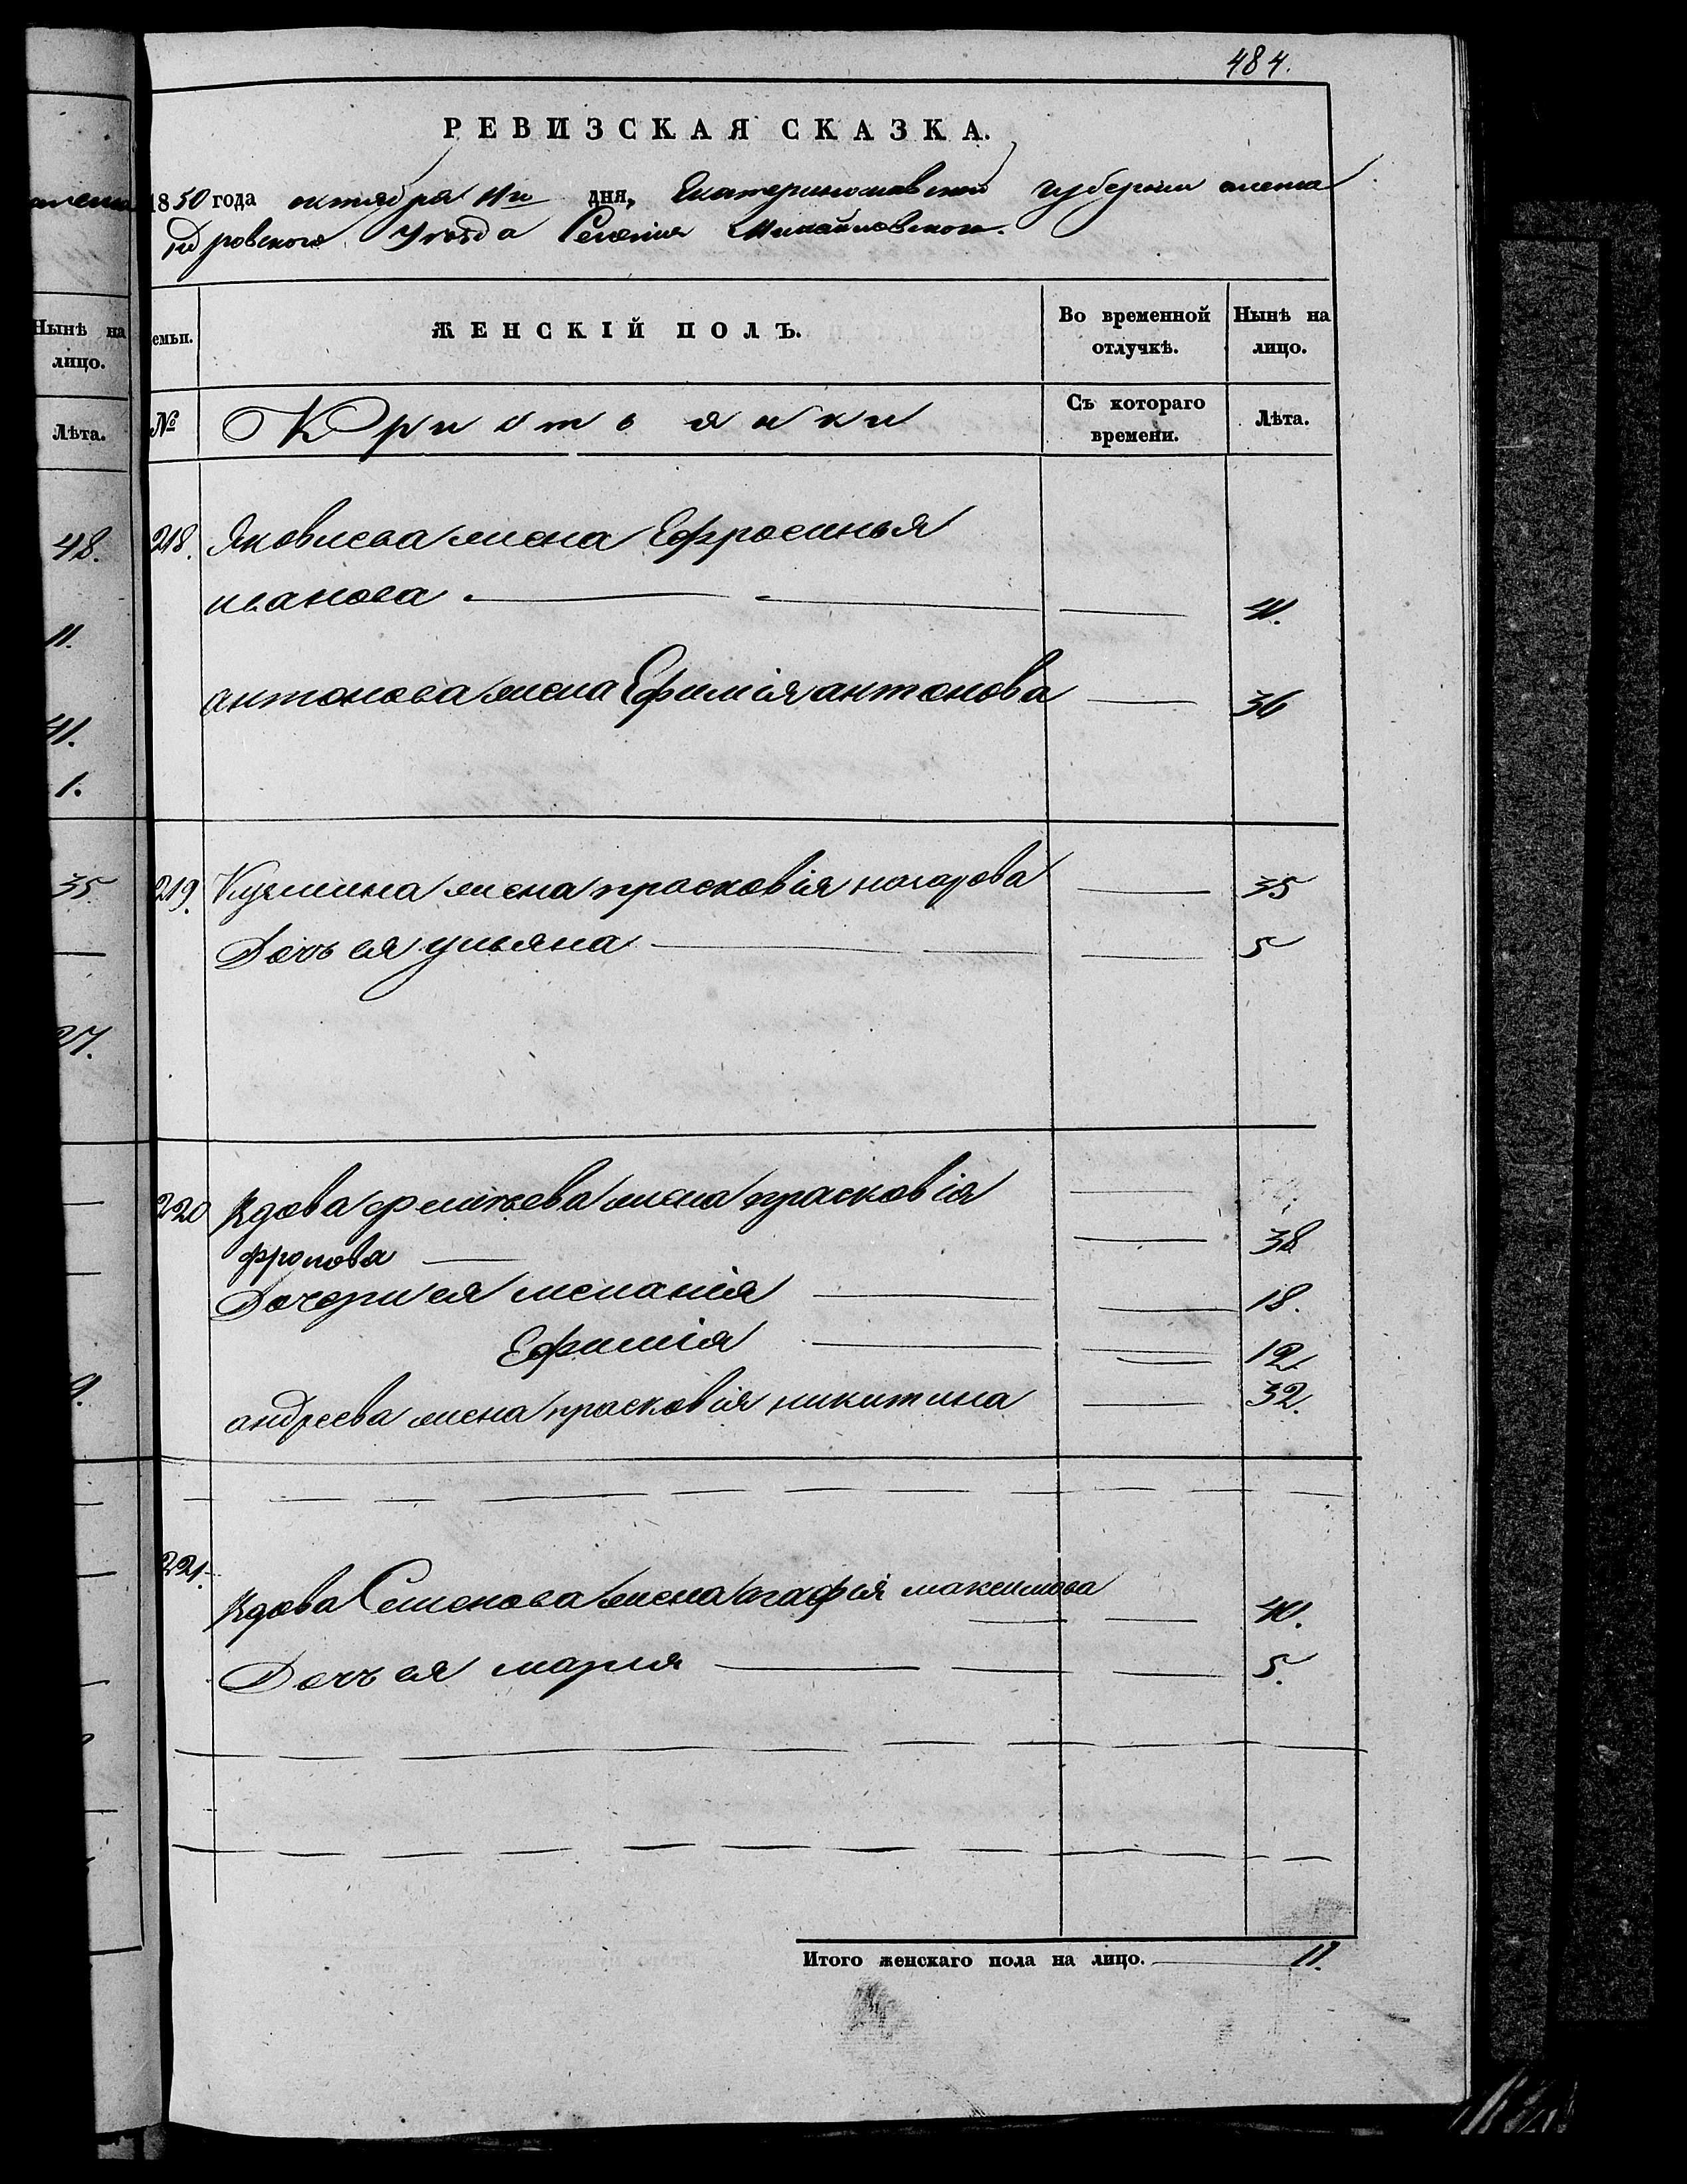 484.
РЕВИЗСКАЯ СКАЗКА.
1850 года октября 11го дня, Екатеринославской губернии алекса
ндровского Уезда Селения Михайловского.
Нынѣ на лицо.
Лѣта.
48.
11.
41.
1.
35
27.
9.
емьи. ЖЕНСКІЙ ПОЛЪ. Во временной отлучкѣ. Нынѣ на лицо.
№ Кристьянки Съ котораго времени. Лѣта.
218. Яковлева жена Ефросинья
иванова 41.
антонова жена Ефимія антонова 36
219. Кузмина жена прасковія назарова 35
Дочь ея ульяна 5
220 вдова жена прасковія
фролова 38
Дочери ея меланія 18.
Ефимія 12.
андреева жена прасковія никитина 32.
221. вдова Семенова жена агафія максимова 40.
Дочь ея марія 5.
Итого женскаго пола на лицо. 11.